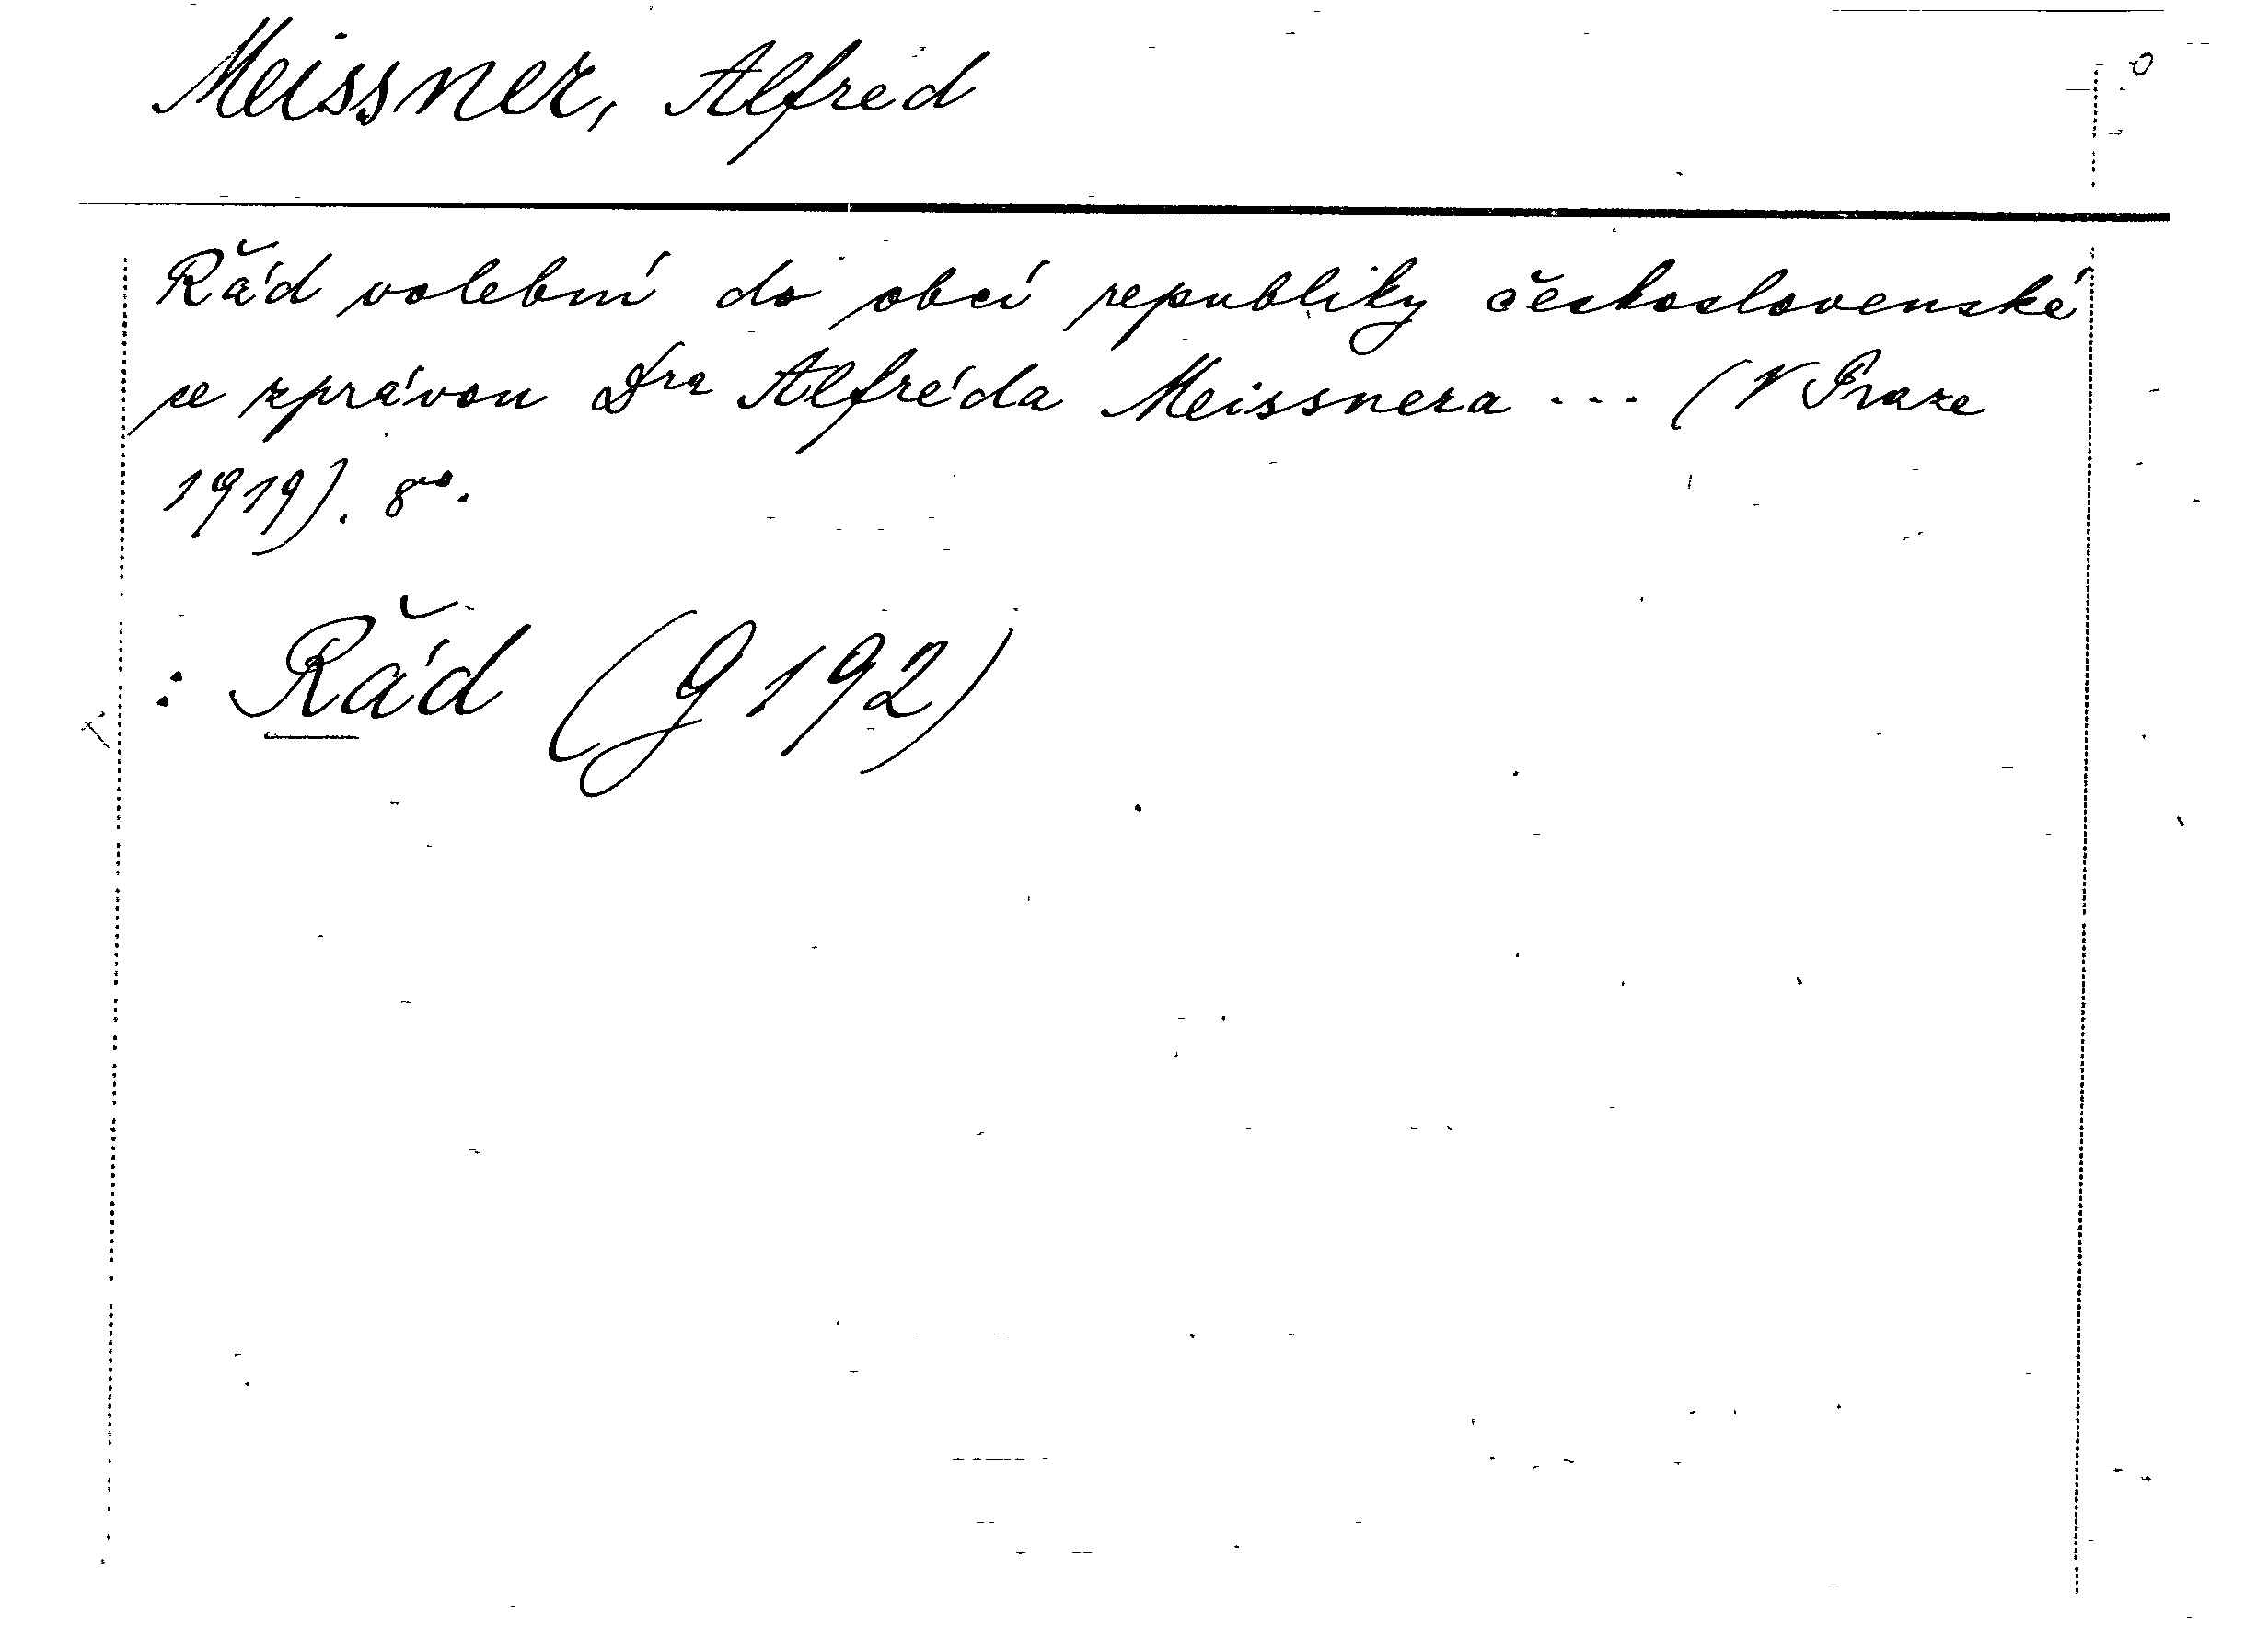 Meissner, Alfred
Řád volební do obcí republiky československé
se zprávou Dra Alfréda Meissnera ... (V Praze
1919). 8°.
: Řád (G 192)